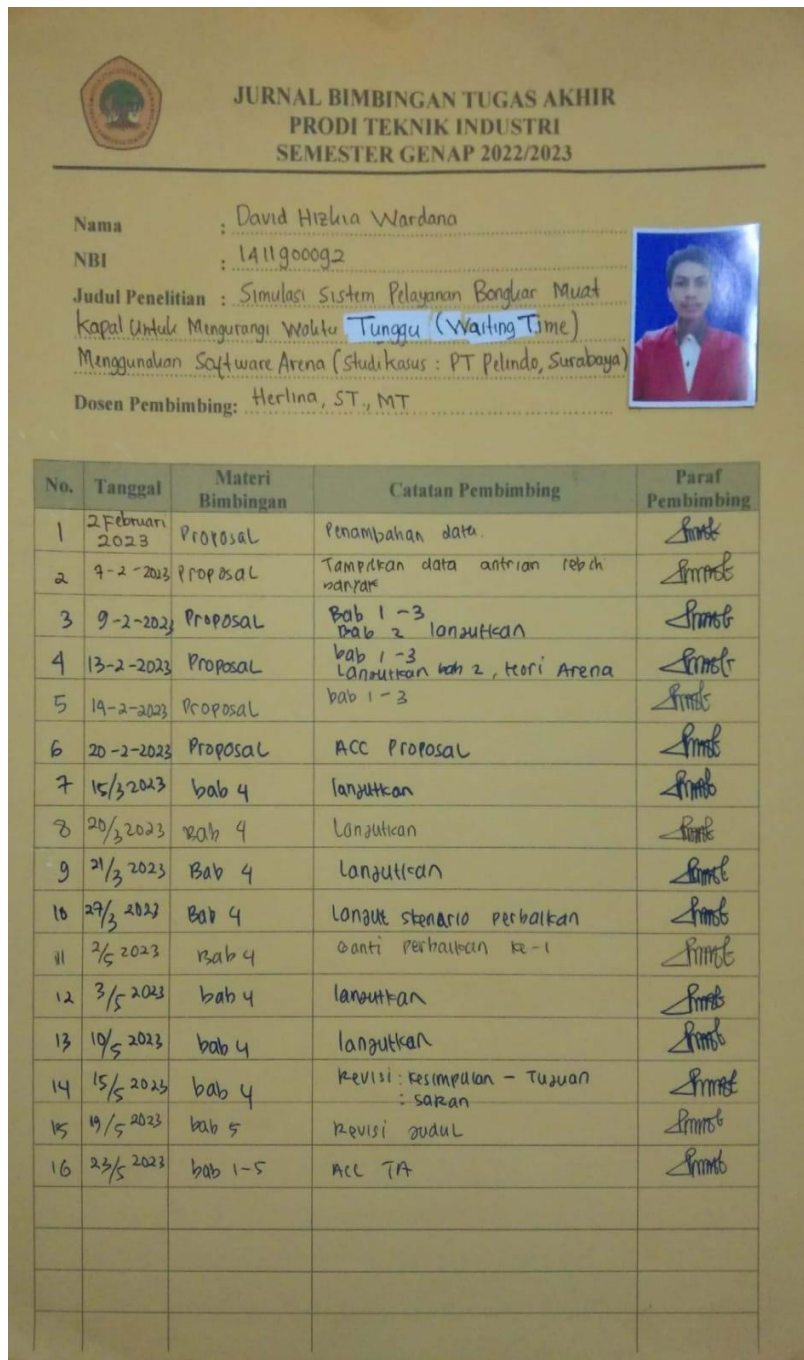 JURNAL BIMBINGAN TUGAS AKHIR
PRODI TEKNIK INDUSTRI
SEMESTER GENAP 2022/2023
Nama : David Hizkia Wardana
NBI : 1411900092
Judul Penelitian : Simulasi Sistem Pelayanan Bongkar Muat
Kapal Untuk Mengurangi Waktu Tunggu (Waiting Time)
Menggunakan Software Arena (Studi kasus : PT Pelindo, Surabaya)
Dosen Pembimbing: Herlina, ST., MT
No. Tanggal Materi Bimbingan Catatan Pembimbing Paraf Pembimbing
1 2 Februari 2023 Proposal Penambahan data.
2 7-2-2023 Proposal Tampilkan data antrian lebih banyak
3 9-2-2023 Proposal Bab 1-3
Bab 2 lanjutkan
4 13-2-2023 Proposal bab 1-3
Lanjutkan bab 2, teori Arena
5 14-2-2023 Proposal bab 1-3
6 20-2-2023 Proposal ACC Proposal
7 15/3 2023 bab 4 lanjutkan
8 20/3 2023 Bab 4 Lanjutkan
9 21/3 2023 Bab 4 Lanjutkan
10 27/3 2023 Bab 4 Lanjut skenario perbaikan
11 2/5 2023 Bab 4 Ganti perbaikan ke-1
12 3/5 2023 bab 4 lanjutkan
13 10/5 2023 bab 4 lanjutkan
14 15/5 2023 bab 4 Revisi : Kesimpulan - Tujuan
: saran
15 19/5 2023 bab 5 Revisi judul
16 23/5 2023 bab 1-5 ACC TA